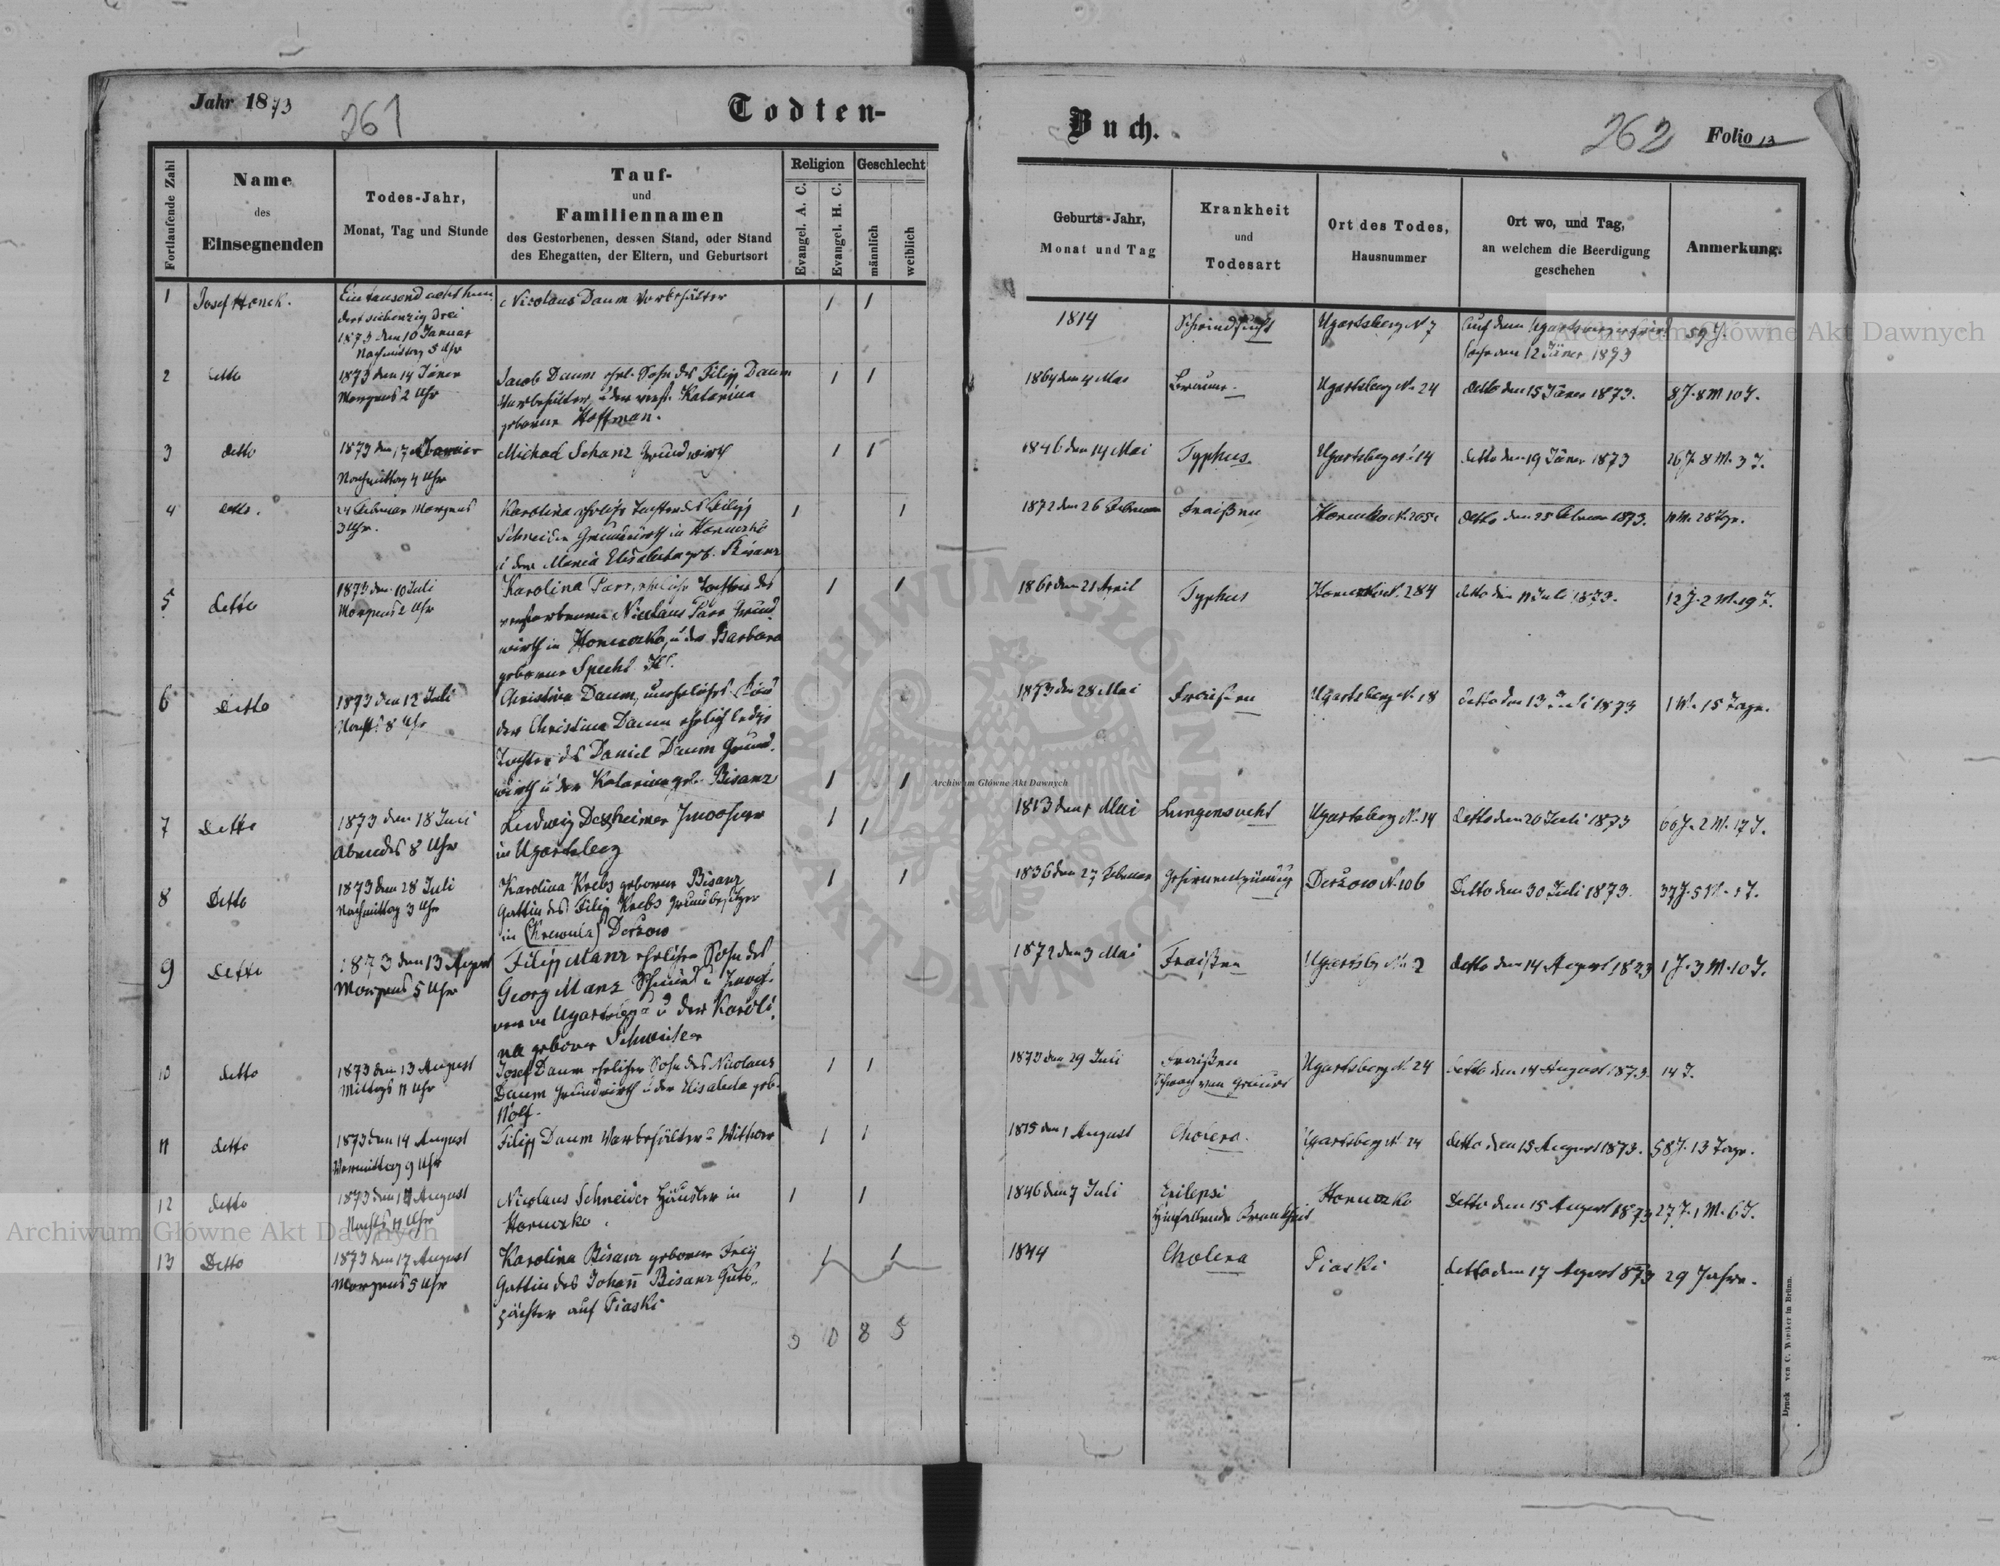 Jahr 1873
261
Todten-
Fortlaufende Zahl
Name
des
Einsegnenden
Todes-Jahr,
Monat, Tag und Stunde
Tauf-
und
Familiennamen
des Gestorbenen, dessen Stand, oder Stand
des Ehegatten, der Eltern, und Geburtsort
Religion
Evangel. A. C.
Evangel. H. C.
Geschlecht
männlich
weiblich
1
Josef Honek.
Ein tausend acht hun
dert siebenzig Drei
1873 den 10 Januar
Nachmittag 5 Uhr
Nicolaus Daum Vorbehälter
1 1
2
detto
1873 den 14 Jäner
Morgens 2 Uhr
Jacob Daum ehel. Sohn des Filipp Daum
Vorbehälter, u der verst. Katarina
geborene Hoffman.
1 1
3
detto
1873 den 17
Nachmittag 4 Uhr
Michael Schanz Grundwirth
1 1
4
detto.
24 Februar Morgens
3 Uhr.
Karolina eheliche Tochter des Filipp
Schneider Grundwirth in Horucko
u der Maria Elisabeta geb. Bisanz
1 1
5
detto
1873 den 10 Juli
Morgens 2 Uhr
Karolina Parr, eheliche Tochter des
verstorbenen Nicolaus Parr Grund
wirth in Horuczko, u der Barbara
geborene Specht
1 1
6
Detto
1873 den 12 Juli
Nachts 8 Uhr
Christina Daum, uneheliches Kind
der Christina Daum ehelich ledige
Tochter des Daniel Daum Grund.
wirth u der Katarina geb. Bisanz
1 1
7
Detto
1873 den 18 Juli
Abendes 8 Uhr
Ludwig Dexheimer Inwohner
in Ugartsberg
1 1
8
Detto
1873 den 28 Juli
Nachmittag 3 Uhr
Karolina Krebs geborene Bisanz
Gattin des Filip Krebs Grundbesitzer
in Derzow
1 1
9
Detto
1873 den 13 August
Morgens 5 Uhr
Filipp Manz ehelicher Sohn des
Georg Manz Schmied u Inwoh-
ner in Ugartsberg u der Karoli
na geborer Schweitzer
10
detto
1873 den 13 August
Mittags 11 Uhr
Josef Daum ehelicher Sohn des Nicolaus
Daum Grundwirth u der Elisabeta geb.
Wolf.
1 1
11
detto
1873 den 14 August
Vormittag 9 Uhr
Filipp Daum Vorbehälter u Wittwer
1 1
12
detto
1873 den 14 August
Nachts 11 Uhr
Nicolaus Schneider Häusler in
Horuczko.
1 1
13
Detto
1873 den 17 August
Morgens 5 Uhr
Karolina Bisanz geborene Frey
Gattin des Johan Bisanz Guts-
pächter auf Piaski
1 1
3 10 8 5
Buch.
262 Folio 13
Geburts-Jahr,
Monat und Tag
Krankheit
und
Todesart
Ort des Todes,
Hausnummer
Ort wo, und Tag,
an welchem die Beerdigung
geschehen
Anmerkung.
1814
Schwindsucht
Ugartsberg N 7
Auf dem Ugartsberger Fried
hofe den 12 Jäner 1873
59 J.
1864 den 4 Mai
Bräune.
Ugartsberg No. 24
detto den 15 Jäner 1873.
8 J. 8 M 10 T.
1846 den 14 Mai
Typhus
Ugartsberg N. 14
detto den 19 Jäner 1873
26 J. 8 M. 3 T.
1872 den 26 Februar
Fraißen
detto den 25 Februar 1873.
11 M. 28 Tge.
1861 den 21 April
Typhus
Horuczko N. 284
detto den 11 Juli 1873.
12 J. 2 M. 19 T.
1873 den 28 Mai
Fraißen
Ugartsberg N. 18
detto den 13 Juli 1873
1 M. 15 Tage.
1813 den 1 Mai
Lungensucht
Ugartsberg N. 14
detto den 20 Juli 1873
60 J. 2 M. 17 T.
1836 den 27 Februar
Gehirnentzündung
Derzow N. 106
Detto den 30 Juli 1873.
37 J. 5 M. 1 T.
1872 den 3 Mai
Fraißen
Ugartsbg No. 2
detto den 14 August 1873
1 J. 3 M. 10 T.
1873 den 29 Juli
Fraißen
Schwach von Geburt
Ugartsberg N. 24
detto den 14 August 1873.
14 T.
1815 den 1 August
Cholera.
Ugartsberg N. 24
detto den 15 August 1873.
58 J. 13 Tage.
1846 den 7 Juli
Epilepsi
Hinfallende Krankheit
Horuczko
Detto den 15 August 1873
27 J. 1 M. 6 T.
1844
Cholera
Piaski
detto den 17 August 1873
29 Jahre.
Druck von C. Winiker in Brünn.
Archiwum Główne Akt Dawnych
Archiwum Główne Akt Dawnych
Archiwum Główne Akt Dawnych
ARCHIWUM GŁÓWNE AKT DAWNYCH